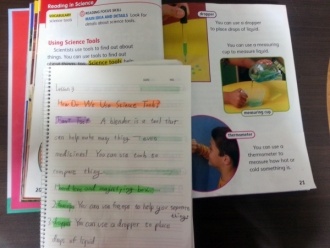 Reading in Science
VOCABULARY
science tools
READING FOCUS SKILL
MAIN IDEA AND DETAILS Look for
details about science tools.
Using Science Tools
Scientists use tools to find out about
things. You can use tools to find out
Science tools
dropper
You can use a dropper
to place drops of liquid.
You can use a measuring
cup to measure liquid.
measuring cup
thermometer
You can use a
thermometer to
measure how hot or
cold something is.
21
20
Lesson 2
How Do We Use Science Tools?
A blender is a tool that
can help make many thing
medicines! You can use tools to
compare thing.
1. You can use these to help your
2. You can use a dropper to place
drops of liquid